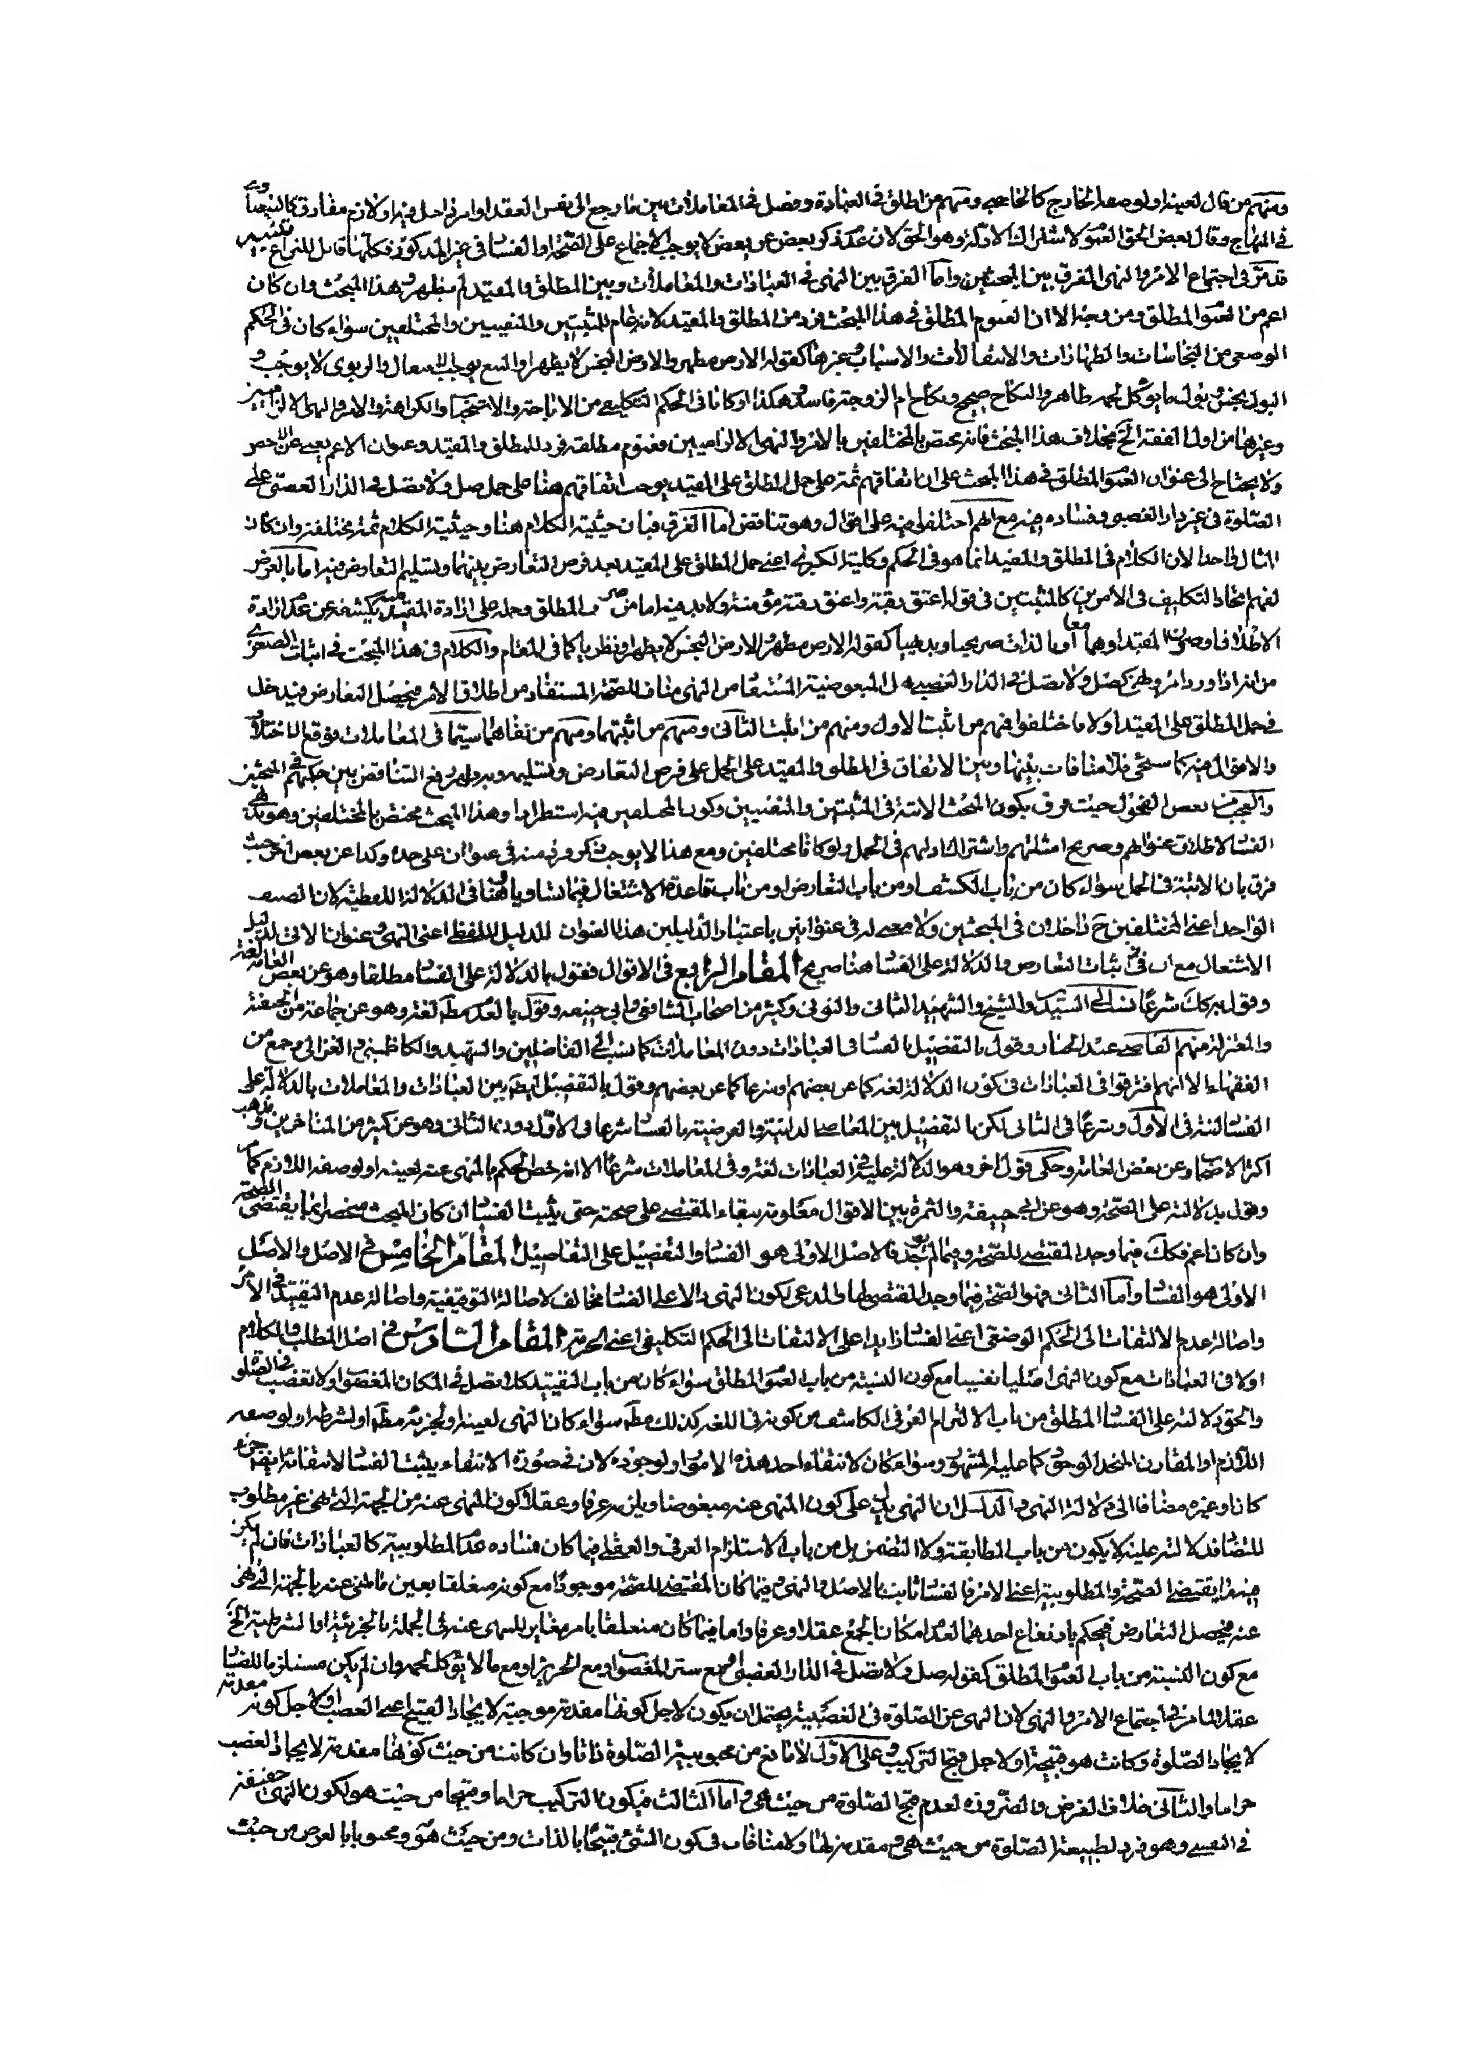 ومنهم من قال لعينه او لوصفه الخارج كالحاجبي ومنهم من اطلق في العبادة وفصل في المعاملات بين ما رجع الى نفس العقد او امر داخل فيه او لازم مفارق كالبيضاوي
في المنهاج وقال بعض الحق العموم لاشتراك الادلة وهو الحق لان عدم ذكر بعض عن بعض لا يوجب الاجماع على الصحة او الفساد في غير المذكور فكلها قابل للنزاع تنبيه
قد مر في اجتماع الامر والنهي الفرق بين المبحثين واما الفرق بين النهي في العبادات والمعاملات وبين المطلق والمقيد لم يظهر هذا المبحث وان كان
اعم من العموم المطلق ومن وجه الا ان العموم المطلق في هذا المبحث فرد من المطلق والمقيد لانه عام للمثبتين والمنفيين والمختلفين سواء كان في الحكم
الوضعي من النجاسات والطهارات والانتقالات والاسباب وغيرها كقوله الارض مطهر والارض النجس لا يطهر او البيع يوجب الانتقال والربوي لا يوجب
البول نجس وبول ما يؤكل لحمه طاهر والنكاح صحيح ونكاح ام الزوجة فاسد وهكذا او كانا في الحكم التكليفي من الاباحة والاستحباب والكراهة والامر والنهي الالزاميين
وغيرها من اول الفقه الى اخره بخلاف هذا المبحث فانه يختص بالمختلفين بالامر والنهي الالزاميين فعموم مطلقه فرد للمطلق والمقيد وعنوان الاعم يغني عن الاخص
ولا يحتاج الى عنوان العموم المطلق في هذا المبحث على ان اتفاقهم ثمة على حمل المطلق على المقيد يوجب اتفاقهم هنا على حمل صل ولا تصل في الدار الغصبي على
الصلوة في غير دار الغصب وفساده فيه مع انهم اختلفوا فيه على اقوال وهو تناقض اما الفرق فبان حيثية الكلام هنا وحيثية الكلام ثمة مختلفة وان كان
المثال واحدا لان الكلام في المطلق والمقيد انما هو في الحكم وكلية الكبرى اعني حمل المطلق على المقيد بعد فرض التعارض بينهما وتسليم التعارض فيه اما بالعرض
لفهم اتحاد التكليف في الامرين كالمثبتين في قوله اعتق رقبة واعتق رقبة مؤمنة ولا بد فيه اما من المطلق وحمله على ارادة المقيد يكشفه عن عدم ارادة
الاطلاق او صرف المقيد او هما معا او بالذات صريحا وبديهيا كقوله الارض مطهر والارض النجس لا يطهر او نظريا كما في المقام والكلام في هذا المبحث في اثبات الصغرى
من انه اذا ورد امر ونهي كصل ولا تصل في الدار الغصبي هل المبغوضية المستفاد من النهي مناف للصحة المستفاد من اطلاق الامر فيحصل التعارض فيدخل
في حمل المطلق على المقيد او لا فاختلفوا فمنهم من اثبت الاول ومنهم من اثبت الثاني ومنهم من اثبتهما ومنهم من نفاهما سيما في المعاملات فوقع الاختلاف
والاقوال فيه كما سيجئ فلا منافات بينها وبين الاتفاق في المطلق والمقيد على الحمل على فرض التعارض وتسليمه وبه يرفع التناقض بين حكمهم في المبحثين
والعجب من بعض الفحول حيث فرق بكون المبحث الاتية في المثبتين والمنفيين وكون المختلفين فيه استطرادا وهذا المبحث مختص بالمختلفين وهو بديهي
الفساد لاطلاق عنوانهم وصريح امثلتهم واشتراك ادلتهم في الحمل ولو كانا مختلفين ومع هذا لا يوجب ذكر فرد منه في عنوان على حدة وكذا عن بعض اخر حيث
فرق بان الاتية في الحمل سواء كان من باب الكشف او من باب التعارض او من باب قاعدة الاشتغال فيما تساويا وهنا في الدلالة اللفظية لان الصنف
الواحد اعني المختلفين ح داخلان في المبحثين ولا معنى له في عنوانين باعتبار الدليلين هذا العنوان للدليل اللفظي اعني النهي وعنوان الاتي لدليل
الاشتغال مع ان في اثبات التعارض والدلالة على الفساد هنا صريح المقام الرابع في الاقوال فقول بالدلالة على الفساد مطلقا وهو عن بعض العامة لغة
وقول به كك شرعا نسب الى السيد والشيخ والشهيد الثاني والنوني وكثير من اصحاب الشافعي وابي حنيفه وقول بالعدم مطلقا لغة وهو عن جماعة من الحنفية
والمعتزلة منهم القاضي عبد الجبار وقول بالتفصيل بالفساد في العبادات دون المعاملات كما نسب الى الفاضلين والشهيد والكاظميني والغزالي وجمع من
الفقهاء الا انهم فرقوا في العبادات في كون الدلالة لغة كما عن بعضهم او شرعا كما عن بعضهم وقول بالتفصيل ايضا بين العبادات والمعاملات بالدلالة على
الفساد لغة في الاول وشرعا في الثاني لكن بالتفصيل بين المعاصي الذاتية والعرضية بالفساد شرعا في الاول دون الثاني وهو عن كثير من المتاخرين ومذهب
اكثر الاصحاب وعن بعض العامة وحكي قول اخر وهو الدلالة عليه في العبادات لغة وفي المعاملات شرعا الا انه خص الحكم بالنهي عنه لعينه او لوصفه اللازم كما مر
وقول بدلالته على الصحة وهو عن ابي حنيفة والثمرة بين الاقوال معلومة ببقاء المقتضي على صحته حتى يثبت الفساد ان كان المبحث منحصرا بما يقتضي الصحة
وان كان اعم فكك فيما وجد المقتضي للصحة وفيما لم يوجد فالاصل الاولى هو الفساد والتفصيل على التفاصيل المقام الخامس في الاصل والاصل
الاولى هو الفساد واما الثاني فهو الصحة فيما وجد المقتضي لها والمدعي بكون النهي دالا على الفساد مخالف لاصالة التوقيفية واصالة عدم التقييد في الامر
واصالة عدم الالتفات الى الحكم الوضعي اعني الفساد زايدا على الالتفات الى الحكم التكليفي اعني الحرمة المقام السادس في اصل المطلب والكلام
اولا في العبادات مع كون النهي اصليا نفسيا مع كون النسبة من باب العموم المطلق سواء كان من باب التقييد كلا تصل في المكان المغصوب او لا تغصب في الصلوة
والحق دلالته على الفساد المطلق من باب الالتزام العرفي الكاشف من كونه في اللغة كذلك مطلقا سواء كان النهي لعينه او لجزئه مطلقا او لشرطه او لوصفه
اللازم او المقارن المتحد الوجود كما عليه المشهور وسواء كان لانتفاء احد هذه الامور او لوجوده لان في صورة الانتفاء يثبت الفساد لانتفائه ايضا جزء
كان او غيره مضافا الى دلالة النهي والدليل ان النهي يدل على كون المنهي عنه مبغوضا ويلزمه عرفا وعقلا كون المنهي عنه من الجهة التي نهي غير مطلوب
للتضاد فدلالته عليه لا يكون من باب المطابقة ولا التضمن بل من باب الاستلزام العرفي والعقلي فيما كان فساده عدم المطلوبية كالعبادات فان لم يكن
فيه ما يقتضي الصحة والمطلوبية اعني الامر فالفساد ثابت بالاصل والنهي وفيما كان المقتضي للصحة موجودا مع كونه متعلقا بعين ما نهي عنه بالجهة التي نهي
عنه فيحصل التعارض فيحكم بارتفاع احدهما لعدم امكان الجمع عقلا وعرفا واما فيما كان متعلقا بامر مغاير للنهي عنه في الجملة بالجزئية او الشرطية الخ
مع كون النسبة من باب العموم المطلق كقوله صل ولا تصل في الدار الغصبي او مع ستر المغصوب او مع الحرير او مع ما لا يؤكل لحمه وان لم يكن مستلزما للفساد
عقلا لما مر في اجتماع الامر والنهي لان النهي عن الصلوة في الغصبية يحتمل ان يكون لاجل كونها مقدمة موجبة لايجاد القبيح اعني الغصب او لاجل كونه مقدمة
لايجاد الصلوة وكانت هو قبيحة او لاجل قبح التركيب وعلى الاول لا مانع من محبوبية الصلوة ذاتا وان كانت من حيث كونها مقدمة لايجاد الغصب
حراما والثاني خلاف الفرض والضرورة لعدم قبح الصلوة من حيث هي واما الثالث فيكون التركيب حراما وقبيحا من حيث هو لكون النهي حقيقة
في النفسي وهو فرد لطبيعة الصلوة من حيث هي ومقدمة لها ولا منافات في كون الشئ قبيحا بالذات ومن حيث هو ومحبوبا بالعرض من حيث